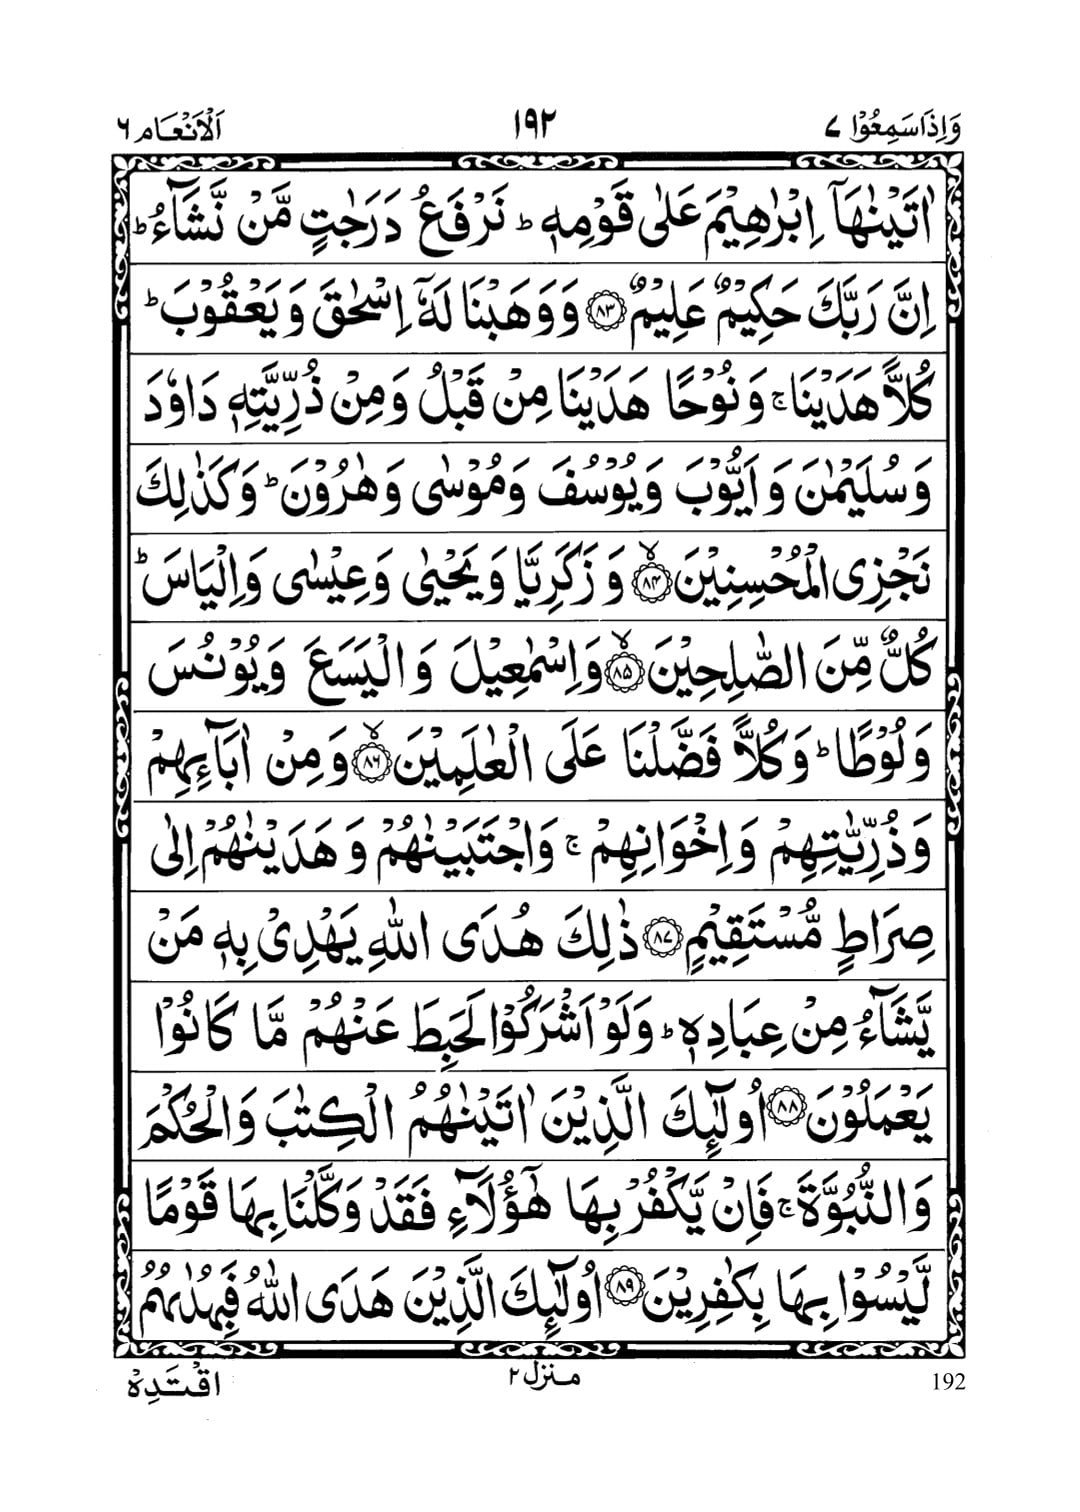 وَاِذَاسَمِعُوْا ٧ ١٩٢ اَلْاَنْعَام ٦
اٰتَيْنٰهَاۤ اِبْرٰهِيْمَ عَلٰى قَوْمِهٖ ؕ نَرْفَعُ دَرَجٰتٍ مَّنْ نَّشَآءُ ؕ
اِنَّ رَبَّكَ حَكِيْمٌ عَلِيْمٌ ﴿۸۳﴾ وَوَهَبْنَا لَهٗۤ اِسْحٰقَ وَيَعْقُوْبَ ؕ
كُلًّا هَدَيْنَا ۚ وَنُوْحًا هَدَيْنَا مِنْ قَبْلُ وَمِنْ ذُرِّيَّتِهٖ دَاوٗدَ
وَسُلَيْمٰنَ وَاَيُّوْبَ وَيُوْسُفَ وَمُوْسٰى وَهٰرُوْنَ ؕ وَكَذٰلِكَ
نَجْزِى الْمُحْسِنِيْنَ ﴿ۙ۸۴﴾ وَزَكَرِيَّا وَيَحْيٰى وَعِيْسٰى وَاِلْيَاسَ ؕ
كُلٌّ مِّنَ الصّٰلِحِيْنَ ﴿ۙ۸۵﴾ وَاِسْمٰعِيْلَ وَالْيَسَعَ وَيُوْنُسَ
وَلُوْطًا ؕ وَكُلًّا فَضَّلْنَا عَلَى الْعٰلَمِيْنَ ﴿ۙ۸۶﴾ وَمِنْ اٰبَآئِهِمْ
وَذُرِّيّٰتِهِمْ وَاِخْوَانِهِمْ ۚ وَاجْتَبَيْنٰهُمْ وَهَدَيْنٰهُمْ اِلٰى
صِرَاطٍ مُّسْتَقِيْمٍ ﴿۸۷﴾ ذٰلِكَ هُدَى اللّٰهِ يَهْدِىْ بِهٖ مَنْ
يَّشَآءُ مِنْ عِبَادِهٖ ؕ وَلَوْ اَشْرَكُوْا لَحَبِطَ عَنْهُمْ مَّا كَانُوْا
يَعْمَلُوْنَ ﴿۸۸﴾ اُولٰٓئِكَ الَّذِيْنَ اٰتَيْنٰهُمُ الْكِتٰبَ وَالْحُكْمَ
وَالنُّبُوَّةَ ۚ فَاِنْ يَّكْفُرْ بِهَا هٰٓؤُلَآءِ فَقَدْ وَكَّلْنَا بِهَا قَوْمًا
لَّيْسُوْا بِهَا بِكٰفِرِيْنَ ﴿۸۹﴾ اُولٰٓئِكَ الَّذِيْنَ هَدَى اللّٰهُ فَبِهُدٰىهُمُ
192 منزل ٢ اقْتَدِهْ